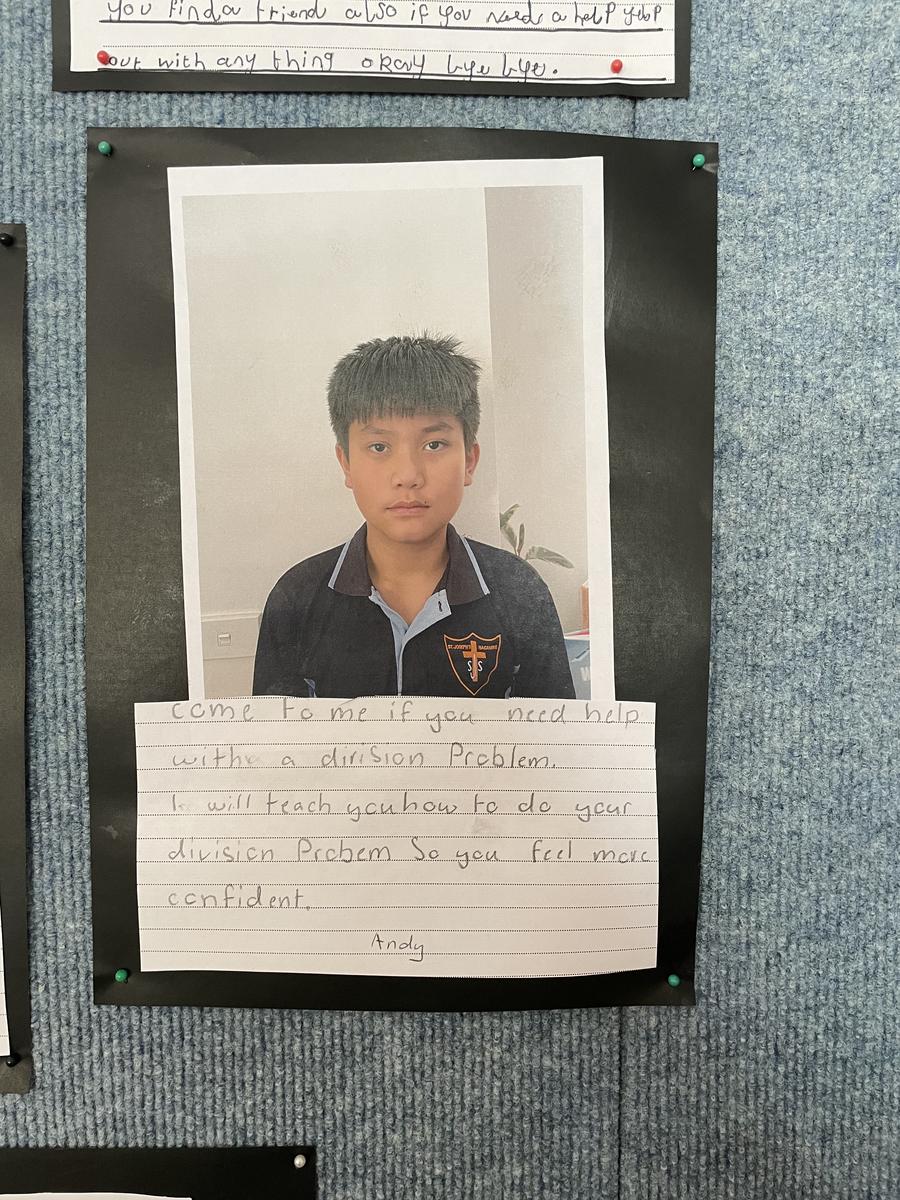 you find a friend also if you needs a help
out with any thing okay bye bye.
ST. JOSEPH'S
SJS
come to me if you need help
with a division Problem.
I will teach you how to do your
division Probem So you feel more
confident.
Andy